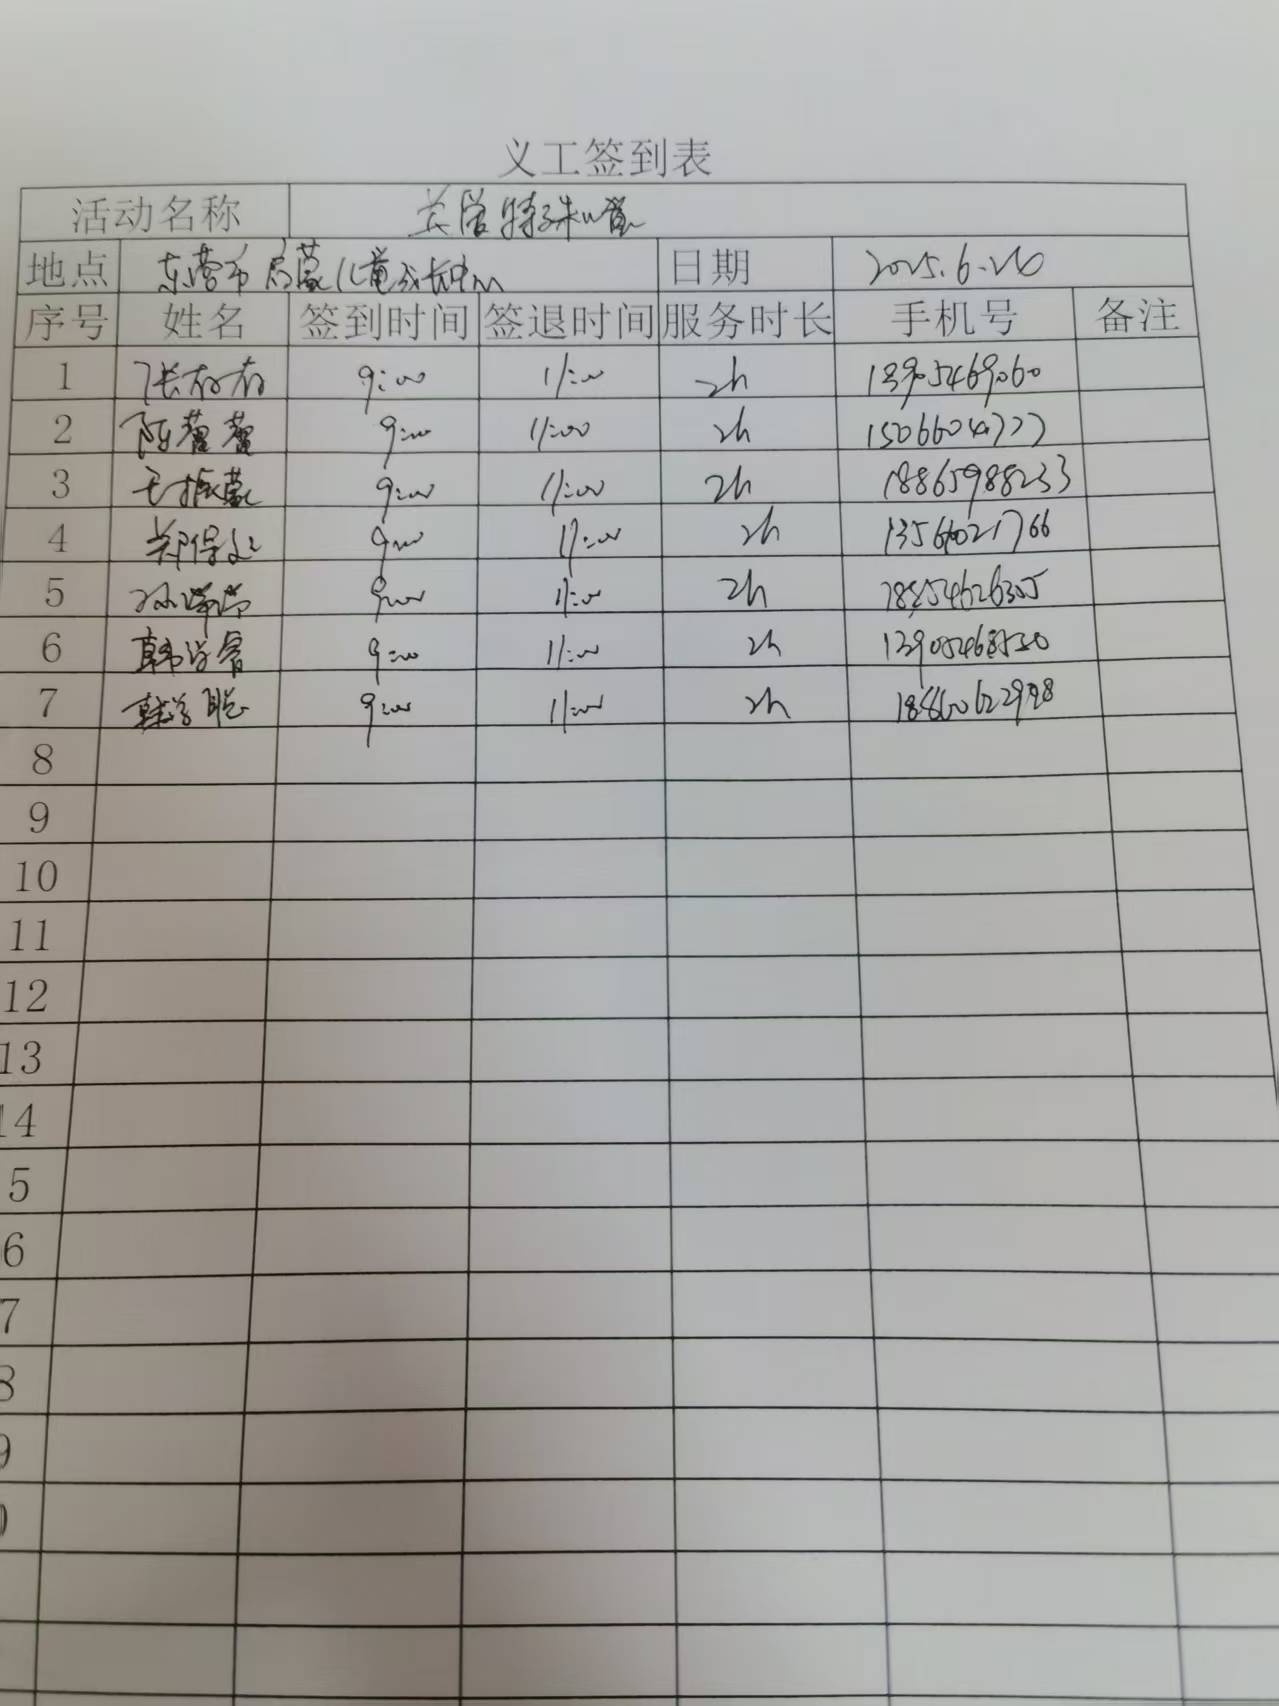 义工签到表
活动名称 关爱特殊儿童
地点 东营市启蒙儿童成长中心 日期 2025.6.26
序号 姓名 签到时间 签退时间 服务时长 手机号 备注
1 张存存 9:00 11:00 2h 13905469060
2 陈蕾蕾 9:00 11:00 2h 15066004777
3 王振蒙 9:00 11:00 2h 18865988233
4 郑保 9:00 11:00 2h 13561021766
5 孙 9:00 11:00 2h 18854626305
6 韩学睿 9:00 11:00 2h 13905468550
7 韩学聪 9:00 11:00 2h
8
9
10
11
12
13
14
5
6
7
8
9
0